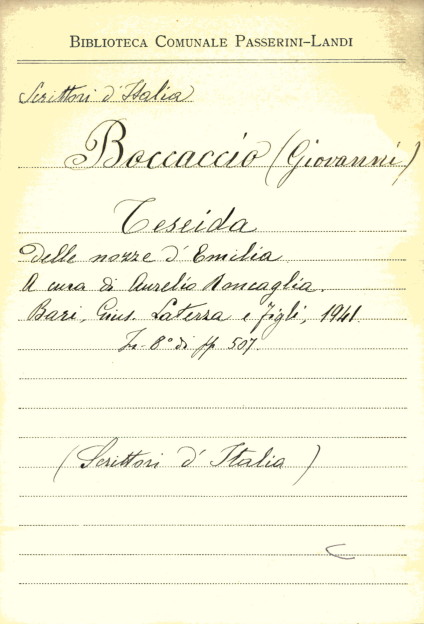 BIBLIOTECA COMUNALE PASSERINI-LANDI
Scrittori d'Italia
Boccaccio (Giovanni)
Teseida
delle nozze d'Emilia
A cura di Aurelio Roncaglia.
Bari, Gius. Laterza e Figli, 1941.
In-8° di pp 507.
(Scrittori d'Italia)